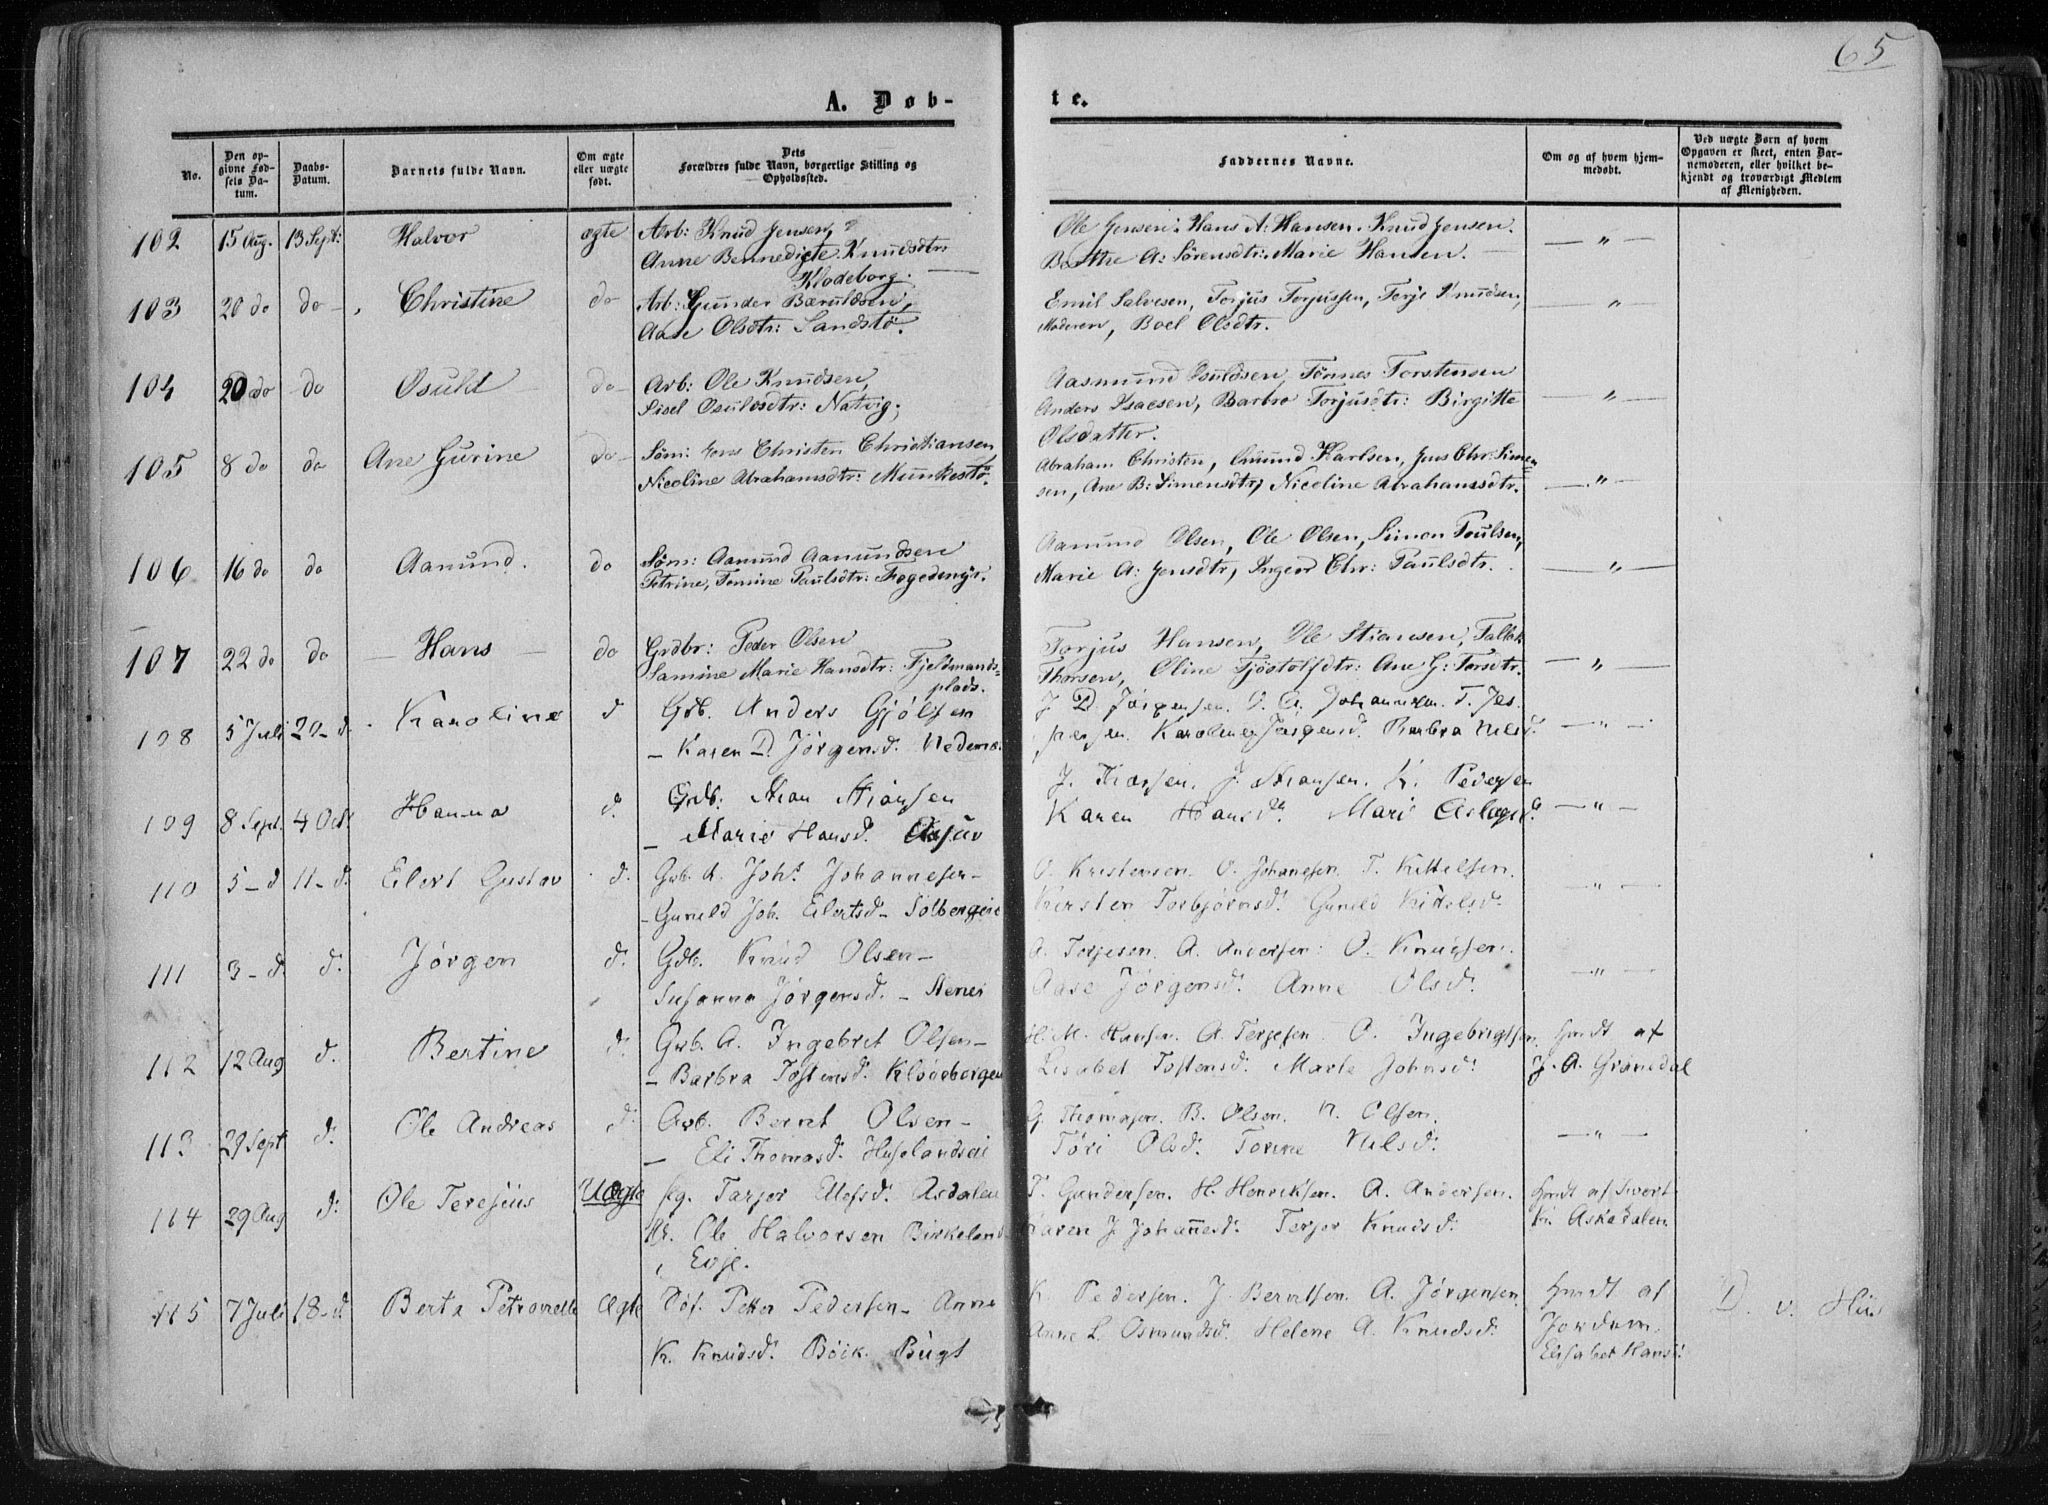 65
A. Døb-
te.
No.
Den op-
givne Fød-
sels Da-
tum.
Daabs-
Datum.
Barnets fulde Navn.
Om ægte
eller uægte
født.
Dets
Forældres fulde Navn, borgerlige Stilling og
Opholdssted.
Faddernes Navne.
Om og af hvem hjem-
medøbt.
Ved uægte Børn af hvem
Opgaven er skeet, enten Bar-
nemoderen, eller hvilket be-
kjendt og troværdigt Medlem
af Menigheden.
102 15 Aug. 13 Sept: Halvor ægte Arb: Knud Jensen,
Anne Bennedigte Knudsdtr:
Klodeborg.
Ole Jensen: Hans A: Hansen. Knud Jensen.
Berthe A: Sörensdtr: Marie Hansen. — " —
103 20 do do Christine do Arb: Gunder Bæruldsen,
Aase Olsdtr: Sandstö.
Emil Salvesen, Torjus Torjussen, Terje Knudsen,
Moderen, Boel Olsdtr. — " —
104 20 do do Osuld do Arb: Ole Knudsen,
Sisel Osuldsdtr: Natvig;
Aasmund Osuldsen, Tönnes Torstensen
Anders Isacsen, Barbro Torjusdtr: Birgitte
Olsdatter. — " —
105 8 do do Ane Gurine do Søm: Jens Christen Christiansen,
Nicoline Abrahamsdtr: Munkestö.
Abraham Christen, Amund Karlsen, Jens Chr: Simen-
sen, Ane B: Simensdtr, Nicoline Abrahamsdtr. — " —
106 16 do do Aanund. do Søm: Aanund Aanundsen
Petrine, Tomine Paulsdtr:
Aanund Olsen, Ole Olsen, Simon Poulsen,
Marie A: Jensdtr, Ingeor Chr: Paulsdtr. — " —
107 22 do do Hans do Grdbr: Peder Olsen
Samine Marie Hansdtr: Fjeldmands-
plads.
Torjus Hansen, Ole Stiansen, Tallak
Thorsen, Oline Tjöstolfdtr: Ane G: Torsdtr. — " —
108 5 Juli 20 - d. Karoline d Grb. Anders Gjölssen
- Karen D. Jørgensd. Nedenæs
J D. Jørgensen. O. A. Johannesen. T. Jes-
persen. Karoline Jørgensd. Barbra Nilsd. — " —
109 8 Sept. 4 Oct. Hanna d. Grdb: Stian Stiansen
- Marie Hansd.
J. Stiansen. K. Pedersen
Karen Hansd. Mari Aslagsd. — " —
110 5 - d 11 - d. Eilert Gustav d. Joh. Johannesen -
- Gunild Joh. Eilertsd. Solbergeie
O. Kristensen. O. Johanesen. T. Kittelsen.
Kirsten Torbjørnsd. Gunild Kittelsd. — " —
111 3 - d. d. Jørgen d. Gdb. Knud Olsen -
Susanna Jørgensd. -
A. Torjesen. A. Andersen: O. Knudsen.
Aase Jørgensd. Anne Olsd. — " —
112 12 Aug d. Bertine d. Grb. A. Ingebret Olsen -
- Barbra Tostensd. Klødeborgeie
H. M. Hansen. A. Terjesen. O. Ingebrigtsen.
Lisabet Tostensd. Marte Johnsd.
Hmdt af
J. A. Grönedal
113 29 Sept d. Ole Andreas d. Arb. Bernt Olsen -
- Eli Thomasd.
G Thomasen. B. Olsen. N. Olsen.
Töri Olsd. Torine Nilsd. — " —
114 29 Aug d: Ole Terejeius Uægte Pg. Tarjer Asdalen
Uk. Ole Halvorsen Birkeland
, Evje.
T. Gundersen. H. Henriksen. A. Andersen.
Karen J Johannesd. Terjer Knudsd.
Hmdt af
Kr. Askedalen
115 7 Juli 18 - d. Berta Petronelle Ægte Petter Pedersen - Anne
K. Knudsd. Böik. Bugt
K. Pedersen. J. Berntsen. A. Jørgensen.
Anne L. Osmundsd. Helene A. Knudsd.
Hmdt af
Jordem.
Elisabet Hansd:
D. v.